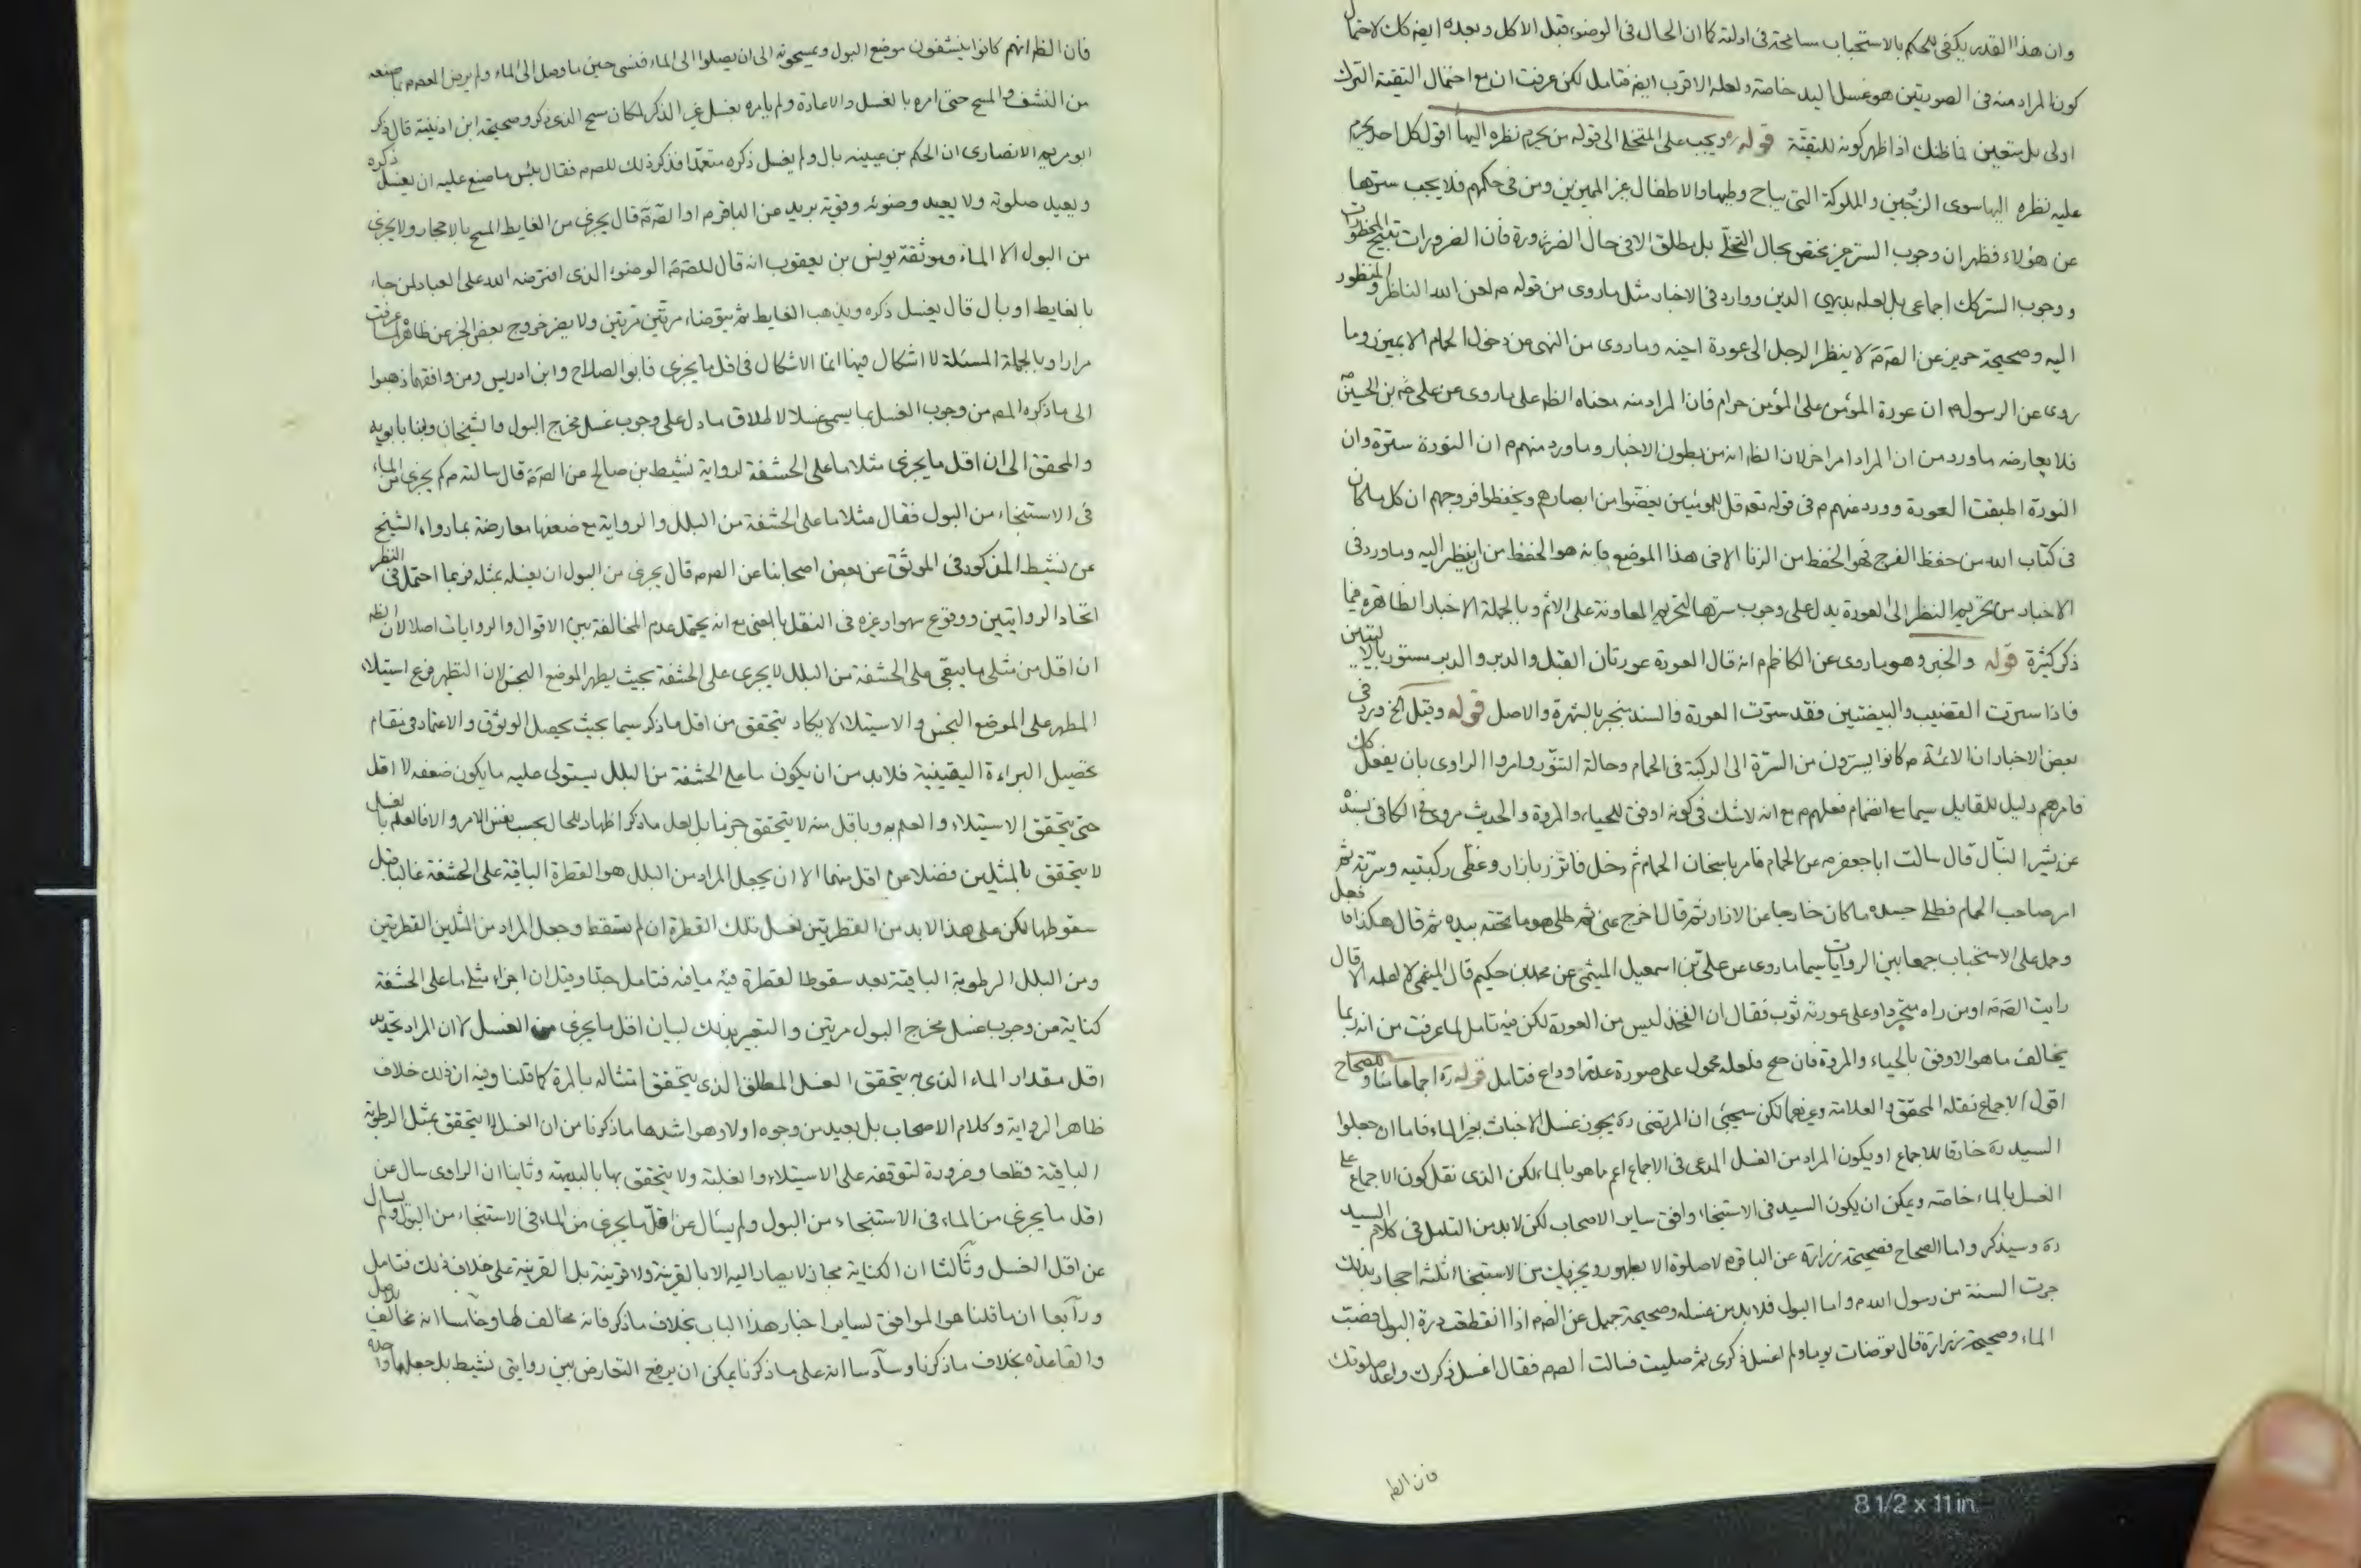 وان هذا القدر يكفى للحكم بالاستحباب مسامحة فى ادلته كما ان الحال فى الوضوء قبل الاكل وبعده ايضه كك لاحتمال
كون المراد منه فى الصورتين هو غسل اليد خاصة ولعله الاقرب ايضه فتامل لكن عرفت ان مع احتمال التقية الترك
اولى بل متعين فما ظنك اذا ظهر كونه للتقية قوله ره ويجب على المتخلى الى قوله من يحرم نظره اليها اقول كل احد يحرم
عليه نظره اليها سوى الزوجين والمملوكة التى يباح وطيها والاطفال غير المميزين ومن فى حكمهم فلا يجب سترها
عن هؤلاء فظهر ان وجوب الستر غير مختص بحال التخلى بل مطلق الا فى حال الضرورة فان الضرورات تبيح المحظورات
ووجوب الستر كك اجماعى بل لعله بديهى الدين ووارد فى الاخبار مثل ما روى من قوله م لعن الله الناظر والمنظور
اليه وصحيحة حريز عن الصَ مَ لا ينظر الرجل الى عورة اخيه وما روى من النهى من دخول الحمام الا بميزر وما
روى عن الرسول م ان عورة المؤمن على المؤمن حرام فان المراد منه معناه الظ على ما روى عن على بن الحسين
فلا يعارضه ما ورد من ان المراد امر اخر لان الظ انه من بطون الاخبار وما ورد منهم م ان النورة سترة وان
النورة اطبقت العورة وورد منهم م فى قوله تعه قل للمؤمنين يغضوا من ابصارهم ويحفظوا فروجهم ان كل ما كان
فى كتاب الله من حفظ الفرج فهو الحفظ من الزنا الا فى هذا الموضع فانه هو الحفظ من ان ينظر اليه وما ورد فى
الاخبار من تحريم النظر الى العورة يدل على وجوب سترها لتحريم المعاونة على الاثم وبالجملة الاخبار الظاهرة فيما
ذكر كثيرة قوله والخبر وهو ما روى عن الكاظم م انه قال العورة عورتان القبل والدبر والدبر مستور بالاليتين
فاذا سترت القضيب والبيضتين فقد سترت العورة والسند منجبر بالشهرة والاصل قوله وقيل الخ ورد فى
بعض الاخبار ان الائمة م كانوا يسترون من السرة الى الركبة فى الحمام وحالة التنور وامروا الراوى بان يفعل كك
فامرهم دليل للقايل سيما مع انضمام فعلهم م مع انه لا شك فى كونه اوفق للحياء والمروة والحديث مروى فى الكافى بسنده
عن بشير النبال قال سالت ابا جعفر م عن الحمام فامر باسخان الحمام ثم دخل فاتزر بازار وغطى ركبتيه وسرته ثم
امر صاحب الحمام فطلى جسده ما كان خارجا عن الازار ثم قال اخرج عنى ثم طلى هو ما تحته بيده ثم قال هكذا فافعل
وحمل على الاستحباب جمعا بين الروايات سيما ما روى عن على بن اسمعيل الميثمى عن محمد بن حكيم قال الميثمى لا اعلمه الا قال
رايت الصَ مَ او من راه متجردا وعلى عورته ثوب فقال ان الفخذ ليس من العورة لكن فيه تامل لما عرفت من انه ربما
يخالف ما هو الاوفق بالحياء والمروة فان صح فلعله محمول على صورة عذر او داع فتامل قوله ره اجماعا منا وللصحاح
اقول الاجماع نقله المحقق والعلامة وغيرهما لكن سيجئ ان المرتضى ره يجوز غسل الاخباث بغير الماء فاما ان جعلوا
السيد ره خارقا للاجماع او يكون المراد من الغسل المدعى فى الاجماع اعم ما هو بالماء لكن الذى نقل كون الاجماع على
الغسل بالماء خاصة ويمكن ان يكون السيد فى الاستنجاء وافق ساير الاصحاب لكن لا بد من التامل فى كلام السيد
ره وسيذكر واما الصحاح فصحيحة زرارة عن الباقر م لا صلوة الا بطهور ويجزيك من الاستنجاء ثلثة احجار بذلك
جرت السنة من رسول الله م واما البول فلا بد من غسله وصحيحة جميل عن الصَ م اذا انقطعت درة البول فصب
الماء وصحيحة زرارة قال توضات يوما ولم اغسل ذكرى ثم صليت فسالت الصَ م فقال اغسل ذكرك واعد صلوتك
فان الظ
فان الظ انهم كانوا ينشفون موضع البول ويمسحونه الى ان يصلوا الى الماء فنسى حين ما وصل الى الماء ولم يرض المعصوم م بما صنعه
من النشف والمسح حتى امره بالغسل والاعادة ولم يامره بغسل غير الذكر لمكان مسح الذى ذكر وصحيحة ابن اذينة قال ذكر
ابو مريم الانصارى ان الحكم بن عيينه بال ولم يغسل ذكره متعمدا فذكر ذلك للصَ م فقال بئس ما صنع عليه ان يغسل ذكره
ويعيد صلوته ولا يعيد وضوئه وقوية بريد عن الباقر م او الصَ مَ قال يجزى من الغايط المسح بالاحجار ولا يجزى
من البول الا الماء وموثقة يونس بن يعقوب انه قال للصَ مَ الوضوء الذى افترضه الله على العباد لمن جاء
بالغايط او بال قال يغسل ذكره ويذهب الغايط ثم يتوضاء مرتين مرتين ولا يضر خروج بعض الخبر عن ظاهره لما عرفت
مرارا وبالجملة المسئلة لا اشكال فيها انما الاشكال فى اقل ما يجزى فابو الصلاح وابن ادريس ومن وافقهما ذهبوا
الى ما ذكره المصه من وجوب الغسل بما يسمى غسلا لاطلاق ما دل على وجوب غسل مخرج البول والشيخان وابنا بابويه
والمحقق الى ان اقل ما يجزى مثلا ما على الحشفة لرواية نشيط بن صالح عن الصَ مَ قال سالته م كم يجزى من الماء
فى الاستنجاء من البول فقال مثلا ما على الحشفة من البلل والرواية مع ضعفها معارضة بما رواه الشيخ
عن نشيط المذكور فى الموثق عن بعض اصحابنا عن الصَ م قال يجزى من البول ان يغسله بمثله فربما احتمل فى النظر
اتحاد الروايتين ووقوع سهو او غيره فى النقل بالمعنى مع انه يحتمل عدم المخالفة بين الاقوال والروايات اصلا لان الظ
ان اقل من مثلى ما يبقى على الحشفة من البلل لا يجرى على الحشفة بحيث يطهر الموضع النجس لان التطهر فرع استيلاء
المطهر على الموضع النجس والاستيلاء لا يكاد يتحقق من اقل ما ذكر سيما بحيث يحصل الوثوق والاعتماد فى مقام
تحصيل البراءة اليقينية فلا بد من ان يكون ما على الحشفة من البلل يستولى عليه ما يكون ضعفه لا اقل
حتى يتحقق الاستيلاء والعلم به وباقل منه لا يتحقق جزما بل لعل ما ذكر اظهار للحال بحسب نفس الامر والا فالعلم بالغسل
لا يتحقق بالمثلين فضلا عن اقل منهما الا ان يجعل المراد من البلل هو القطرة الباقية على الحشفة غالبا قبل
سقوطها لكن على هذا لا بد من القطرتين لغسل تلك القطرة ان لم تسقط وجعل المراد من المثلين القطرتين
ومن البلل الرطوبة الباقية بعد سقوط القطرة فيه ما فيه فتامل جدا وقيل ان اجزاء مثلى ما على الحشفة
كناية عن وجوب غسل مخرج البول مرتين والتعبير بذلك لبيان اقل ما يجزى من الغسل لا ان المراد تحديد
اقل مقدار الماء الذى به يتحقق الغسل المطلق الذى يتحقق امتثاله بالمرة كما قلنا وفيه ان ذلك خلاف
ظاهر الرواية وكلام الاصحاب بل بعيد من وجوه اولا وهو اشدها ما ذكرنا من ان الغسل لا يتحقق بمثل الرطوبة
الباقية قطعا وضرورة لتوقفه على الاستيلاء والغلبة ولا يتحقق بها بالبديهة وثانيا ان الراوى سال عن
اقل ما يجزى من الماء فى الاستنجاء من البول ولم يسأل عن اقل ما يجزى من الماء فى الاستنجاء من البول ولم يسال
عن اقل الغسل وثالثا ان الكناية مجاز لا يصار اليه الا بالقرينة ولا قرينة بل القرينة على خلاف ذلك فتامل
ورابعا ان ما قلنا هو الموافق لساير اخبار هذا الباب بخلاف ما ذكر فانه مخالف لها وخامسا انه مخالف للاصل
والقاعدة بخلاف ما ذكرنا وسادسا انه على ما ذكرنا يمكن ان يرفع التعارض بين روايتى نشيط بل جعلهما واحدة
8 1/2 x 11 in.